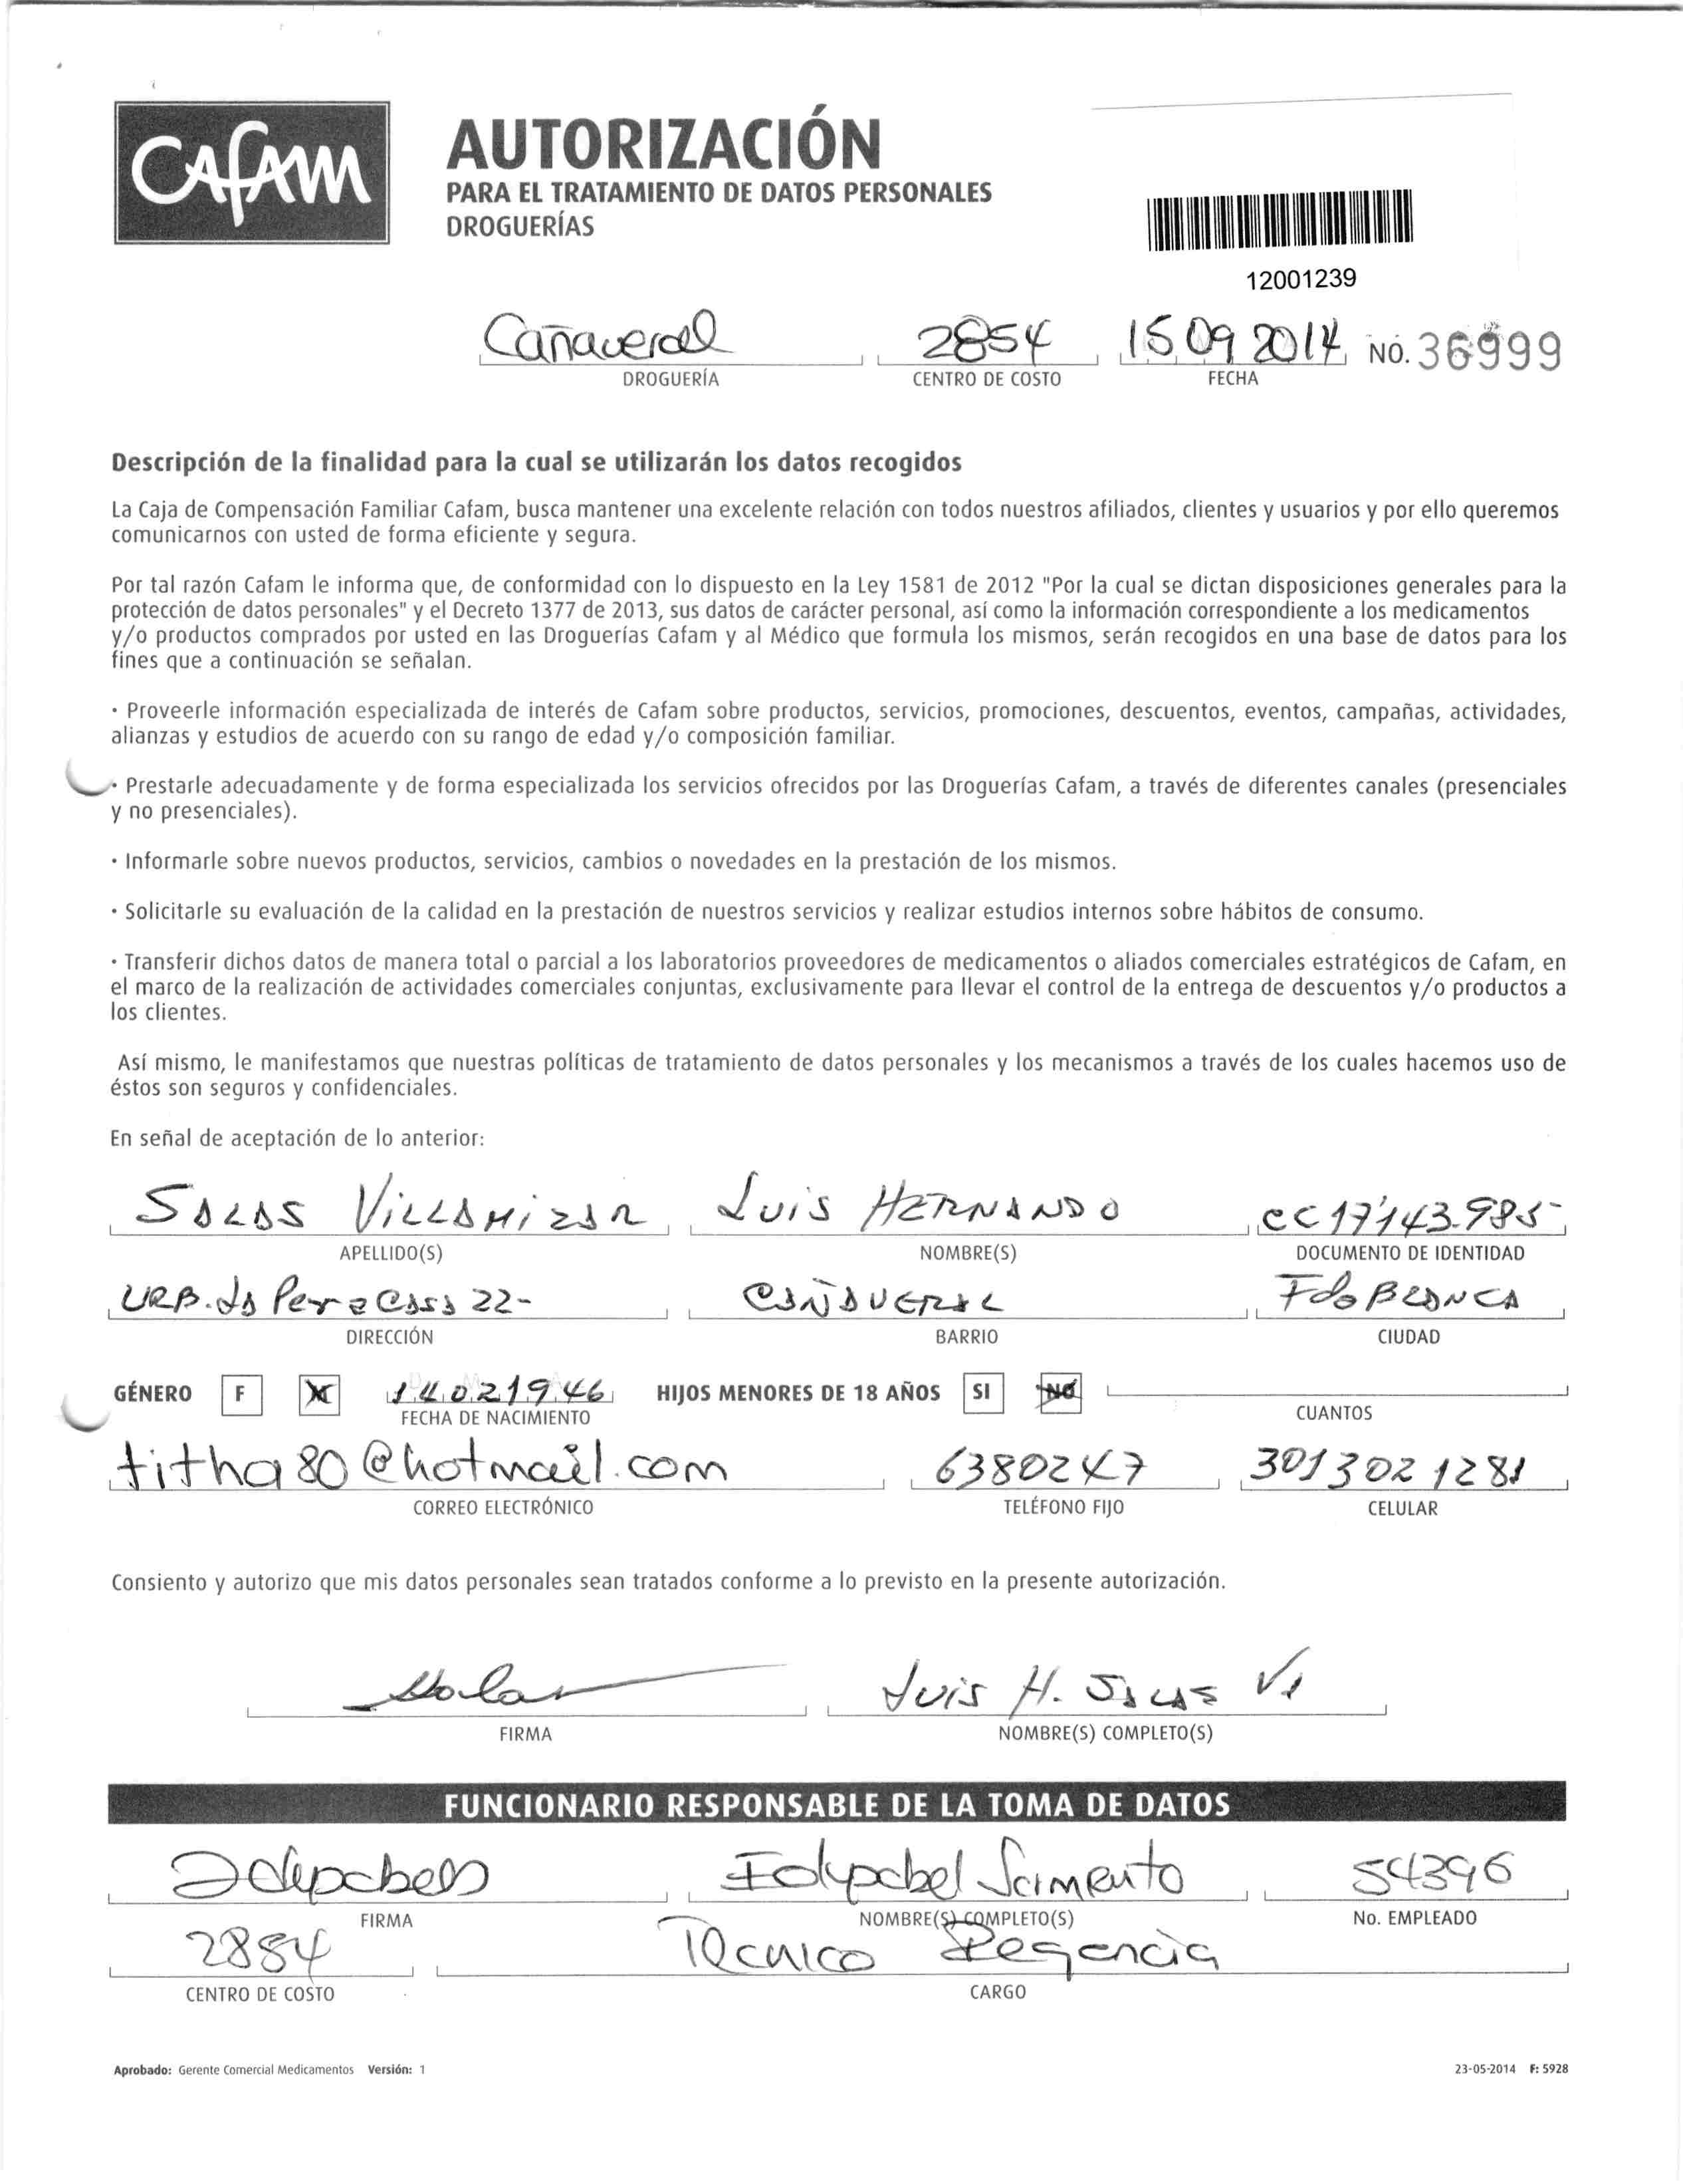 CAfAM
AUTORIZACIÓN
PARA EL TRATAMIENTO DE DATOS PERSONALES
DROGUERÍAS
12001239
Cañaveral 2854 15 09 2014 NO. 36999
DROGUERÍA CENTRO DE COSTO FECHA
Descripción de la finalidad para la cual se utilizarán los datos recogidos
La Caja de Compensación Familiar Cafam, busca mantener una excelente relación con todos nuestros afiliados, clientes y usuarios y por ello queremos
comunicarnos con usted de forma eficiente y segura.
Por tal razón Cafam le informa que, de conformidad con lo dispuesto en la Ley 1581 de 2012 "Por la cual se dictan disposiciones generales para la
protección de datos personales" y el Decreto 1377 de 2013, sus datos de carácter personal, así como la información correspondiente a los medicamentos
y/o productos comprados por usted en las Droguerías Cafam y al Médico que formula los mismos, serán recogidos en una base de datos para los
fines que a continuación se señalan.
· Proveerle información especializada de interés de Cafam sobre productos, servicios, promociones, descuentos, eventos, campañas, actividades,
alianzas y estudios de acuerdo con su rango de edad y/o composición familiar.
· Prestarle adecuadamente y de forma especializada los servicios ofrecidos por las Droguerías Cafam, a través de diferentes canales (presenciales
y no presenciales).
· Informarle sobre nuevos productos, servicios, cambios o novedades en la prestación de los mismos.
· Solicitarle su evaluación de la calidad en la prestación de nuestros servicios y realizar estudios internos sobre hábitos de consumo.
· Transferir dichos datos de manera total o parcial a los laboratorios proveedores de medicamentos o aliados comerciales estratégicos de Cafam, en
el marco de la realización de actividades comerciales conjuntas, exclusivamente para llevar el control de la entrega de descuentos y/o productos a
los clientes.
Así mismo, le manifestamos que nuestras políticas de tratamiento de datos personales y los mecanismos a través de los cuales hacemos uso de
éstos son seguros y confidenciales.
En señal de aceptación de lo anterior:
SALAS VILLAMIZAR LUIS HERNANDO CC 17'143.985
APELLIDO(S) NOMBRE(S) DOCUMENTO DE IDENTIDAD
URB. La Pera Casa 22- CAÑAVERAL Fdo BLANCA
DIRECCIÓN BARRIO CIUDAD
GÉNERO F 14021946 HIJOS MENORES DE 18 AÑOS SI NO
FECHA DE NACIMIENTO CUANTOS
titha80@hotmail.com 6380247 3013021281
CORREO ELECTRÓNICO TELÉFONO FIJO CELULAR
Consiento y autorizo que mis datos personales sean tratados conforme a lo previsto en la presente autorización.
Luis H. SALAS Vi
FIRMA NOMBRE(S) COMPLETO(S)
FUNCIONARIO RESPONSABLE DE LA TOMA DE DATOS
Sarmento 54396
FIRMA NOMBRE(S) COMPLETO(S) No. EMPLEADO
2854 Tecnico Regencia
CENTRO DE COSTO CARGO
Aprobado: Gerente Comercial Medicamentos Versión: 1 23-05-2014 F: 5928